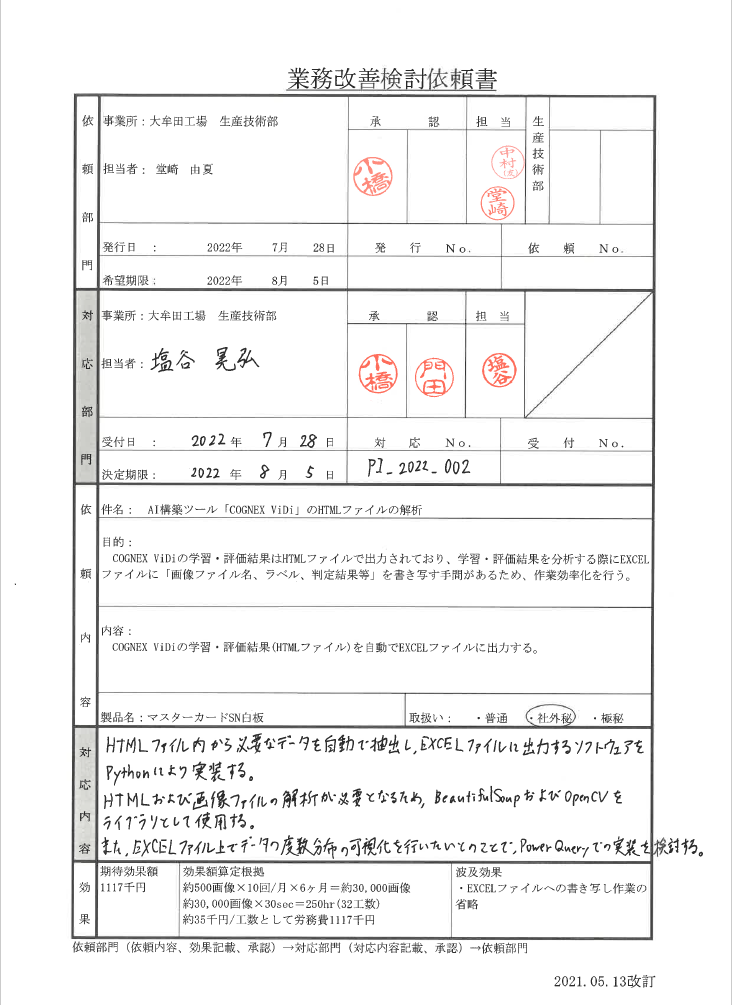 業務改善検討依頼書
依頼部門
事業所：大牟田工場　生産技術部
承　認　担　当
生産技術部
担当者：　堂崎　由夏
小橋
中村(友)
堂崎
発行日　：　2022年　7月　28日
発　行　No.　依　頼　No.
希望期限：　2022年　8月　5日
対応部門
事業所：大牟田工場　生産技術部
承　認　担　当
担当者：塩谷　晃弘
小橋　門田　塩谷
受付日　：　2022年　7月　28日
対　応　No.　受　付　No.
決定期限：　2022年　8月　5日
PI_2022_002
依頼内容
件名：　AI構築ツール「COGNEX ViDi」のHTMLファイルの解析
目的：
COGNEX ViDiの学習・評価結果はHTMLファイルで出力されており、学習・評価結果を分析する際にEXCEL
ファイルに「画像ファイル名、ラベル、判定結果等」を書き写す手間があるため、作業効率化を行う。
内容：
COGNEX ViDiの学習・評価結果(HTMLファイル)を自動でEXCELファイルに出力する。
製品名：マスターカードSN白板
取扱い：　・普通　・社外秘　・極秘
対応内容
HTMLファイル内から必要なデータを自動で抽出し,EXCELファイルに出力するソフトウェアを
Pythonにより実装する。
HTMLおよび画像ファイルの解析が必要となるため, BeautifulSoupおよびOpenCVを
ライブラリとして使用する。
また,EXCELファイル上でデータの度数分布の可視化を行いたいとのことで,Power Queryでの実装を検討する。
効果
期待効果額
1117千円
効果額算定根拠
約500画像×10回/月×6ヶ月＝約30,000画像
約30,000画像×30sec＝250hr(32工数)
約35千円/工数として労務費1117千円
波及効果
・EXCELファイルへの書き写し作業の
省略
依頼部門（依頼内容、効果記載、承認）→対応部門（対応内容記載、承認）→依頼部門
2021.05.13改訂